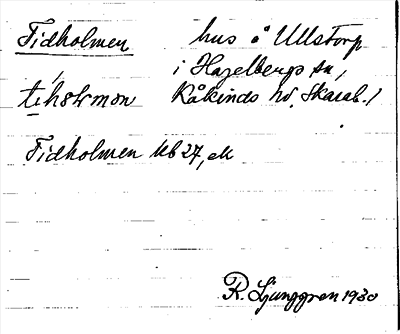 Tidholmen hus å Ullstorp
i Hagelbergs sn,
Kåkinds hd, Skarab. l
Tidholmen Ub 27, ek
R. Ljunggren 1930